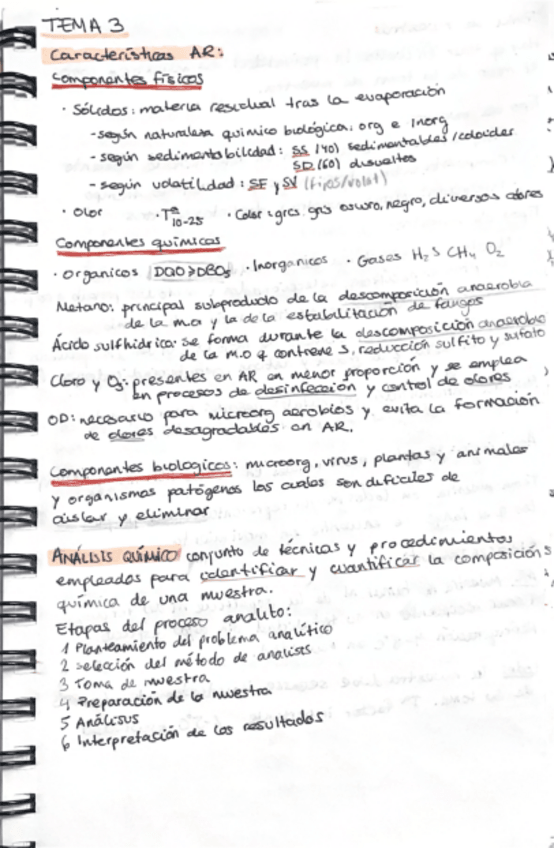 TEMA 3
Características AR:
Componentes físicos
· Sólidos: materia residual tras la evaporación
-según naturaleza quimico biológica: org e inorg
-según sedimentabilidad: SS (40) sedimentables/coloides
SD (60) disueltos
-según volatilidad: SF y SV (fijos/volat)
· Olor · Tª 10-25 · Color: gris, gris oscuro, negro, diversos colores
Componentes químicos
· Organicos DQO>DBO5 · Inorganicos · Gases H2S CH4 O2
Metano: principal subproducto de la descomposición anaerobia
de la m.o y la de la estabilización de fangos
Ácido sulfhídrico: se forma durante la descomposición anaerobia
de la m.o q contiene S, reducción sulfito y sulfato
Cloro y O3: presentes en AR en menor proporción y se emplea
en procesos de desinfección y control de olores
OD: necesario para microorg aerobios y evita la formación
de olores desagradables en AR.
Componentes biologicos: microorg, virus, plantas y animales
y organismos patógenos los cuales son dificiles de
aislar y eliminar
ANÁLISIS QUÍMICO conjunto de técnicas y procedimientos
empleados para cuantificar la composición
química de una muestra.
Etapas del proceso analito:
1 Planteamiento del problema analítico
2 Selección del método de analisis
3 Toma de muestra
4 Preparación de la muestra
5 Análisis
6 Interpretación de los resultados